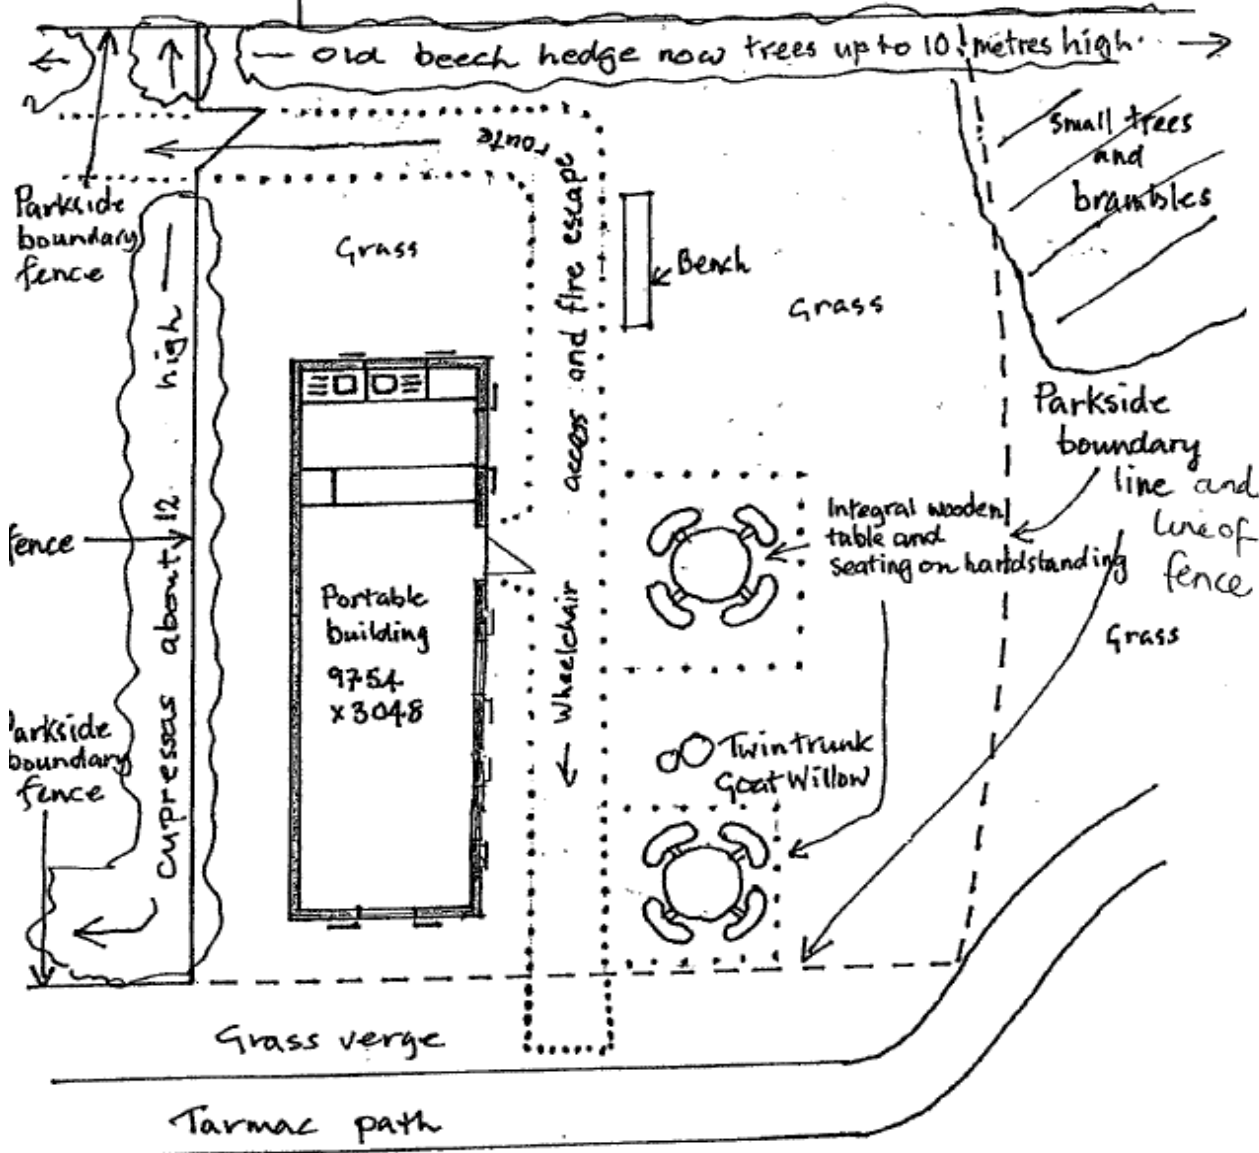 old beech hedge now trees up to 10 metres high.
small trees
and
brambles
Parkside
boundary
fence
Grass
Wheelchair access and fire escape route
Bench
Grass
Parkside
boundary
line and
line of
fence
Integral wooden
table and
seating on hardstanding
fence
cupressas about 12 high
Portable
building
9754
x 3048
Grass
Parkside
boundary
fence
Twin trunk
Goat Willow
Grass verge
Tarmac path